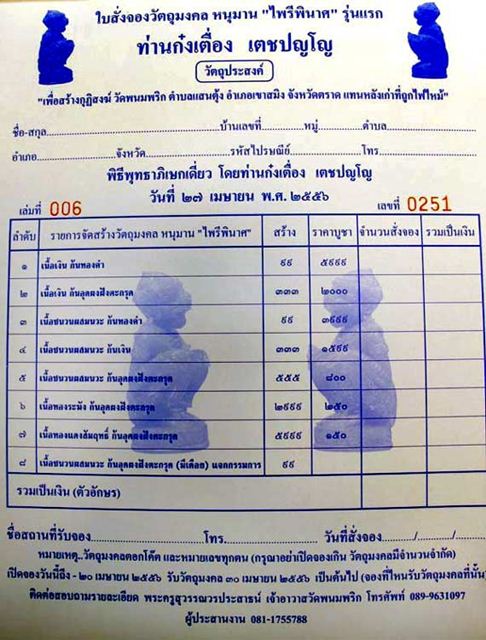 ใบสั่งจองวัตถุมงคล หนุมาน "ไพรีพินาศ" รุ่นแรก
ท่านก๋งเตื่อง เตชปญฺโญ
วัตถุประสงค์
"เพื่อสร้างกุฏิสงฆ์ วัดพนมพริก ตำบลแสนตุ้ง อำเภอเขาสมิง จังหวัดตราด แทนหลังเก่าที่ถูกไฟไหม้"
ชื่อ-สกุล..............................บ้านเลขที่..............หมู่..............ตำบล..............
อำเภอ..............จังหวัด..............รหัสไปรษณีย์..............โทร..............
พิธีพุทธาภิเษกเดี่ยว โดยท่านก๋งเตื่อง เตชปญฺโญ
วันที่ ๒๗ เมษายน พ.ศ. ๒๕๕๖
เล่มที่ 006 เลขที่ 0251
ลำดับ รายการจัดสร้างวัตถุมงคล หนุมาน "ไพรีพินาศ" สร้าง ราคาบูชา จำนวนสั่งจอง รวมเป็นเงิน
๑ เนื้อเงิน ก้นทองคำ ๙๙ ๕๙๙๙
๒ เนื้อเงิน ก้นอุดผงฝังตะกรุด ๓๓๓ ๒๐๐๐
๓ เนื้อชนวนผสมนวะ ก้นทองคำ ๙๙ ๓๙๙๙
๔ เนื้อชนวนผสมนวะ ก้นเงิน ๓๓๓ ๑๕๙๙
๕ เนื้อชนวนผสมนวะ ก้นอุดผงฝังตะกรุด ๕๕๕ ๘๐๐
๖ เนื้อทองระฆัง ก้นอุดผงฝังตะกรุด ๒๙๙๙ ๒๕๐
๗ เนื้อทองแดงสัมฤทธิ์ ก้นอุดผงฝังตะกรุด ๕๙๙๙ ๑๕๐
๘ เนื้อชนวนผสมนวะ ก้นอุดผงฝังตะกรุด (มีเดือย) แจกกรรมการ ๙๙
รวมเป็นเงิน (ตัวอักษร)
ชื่อสถานที่รับจอง..............................โทร.............................. วันที่สั่งจอง........./........./.........
หมายเหตุ..วัตถุมงคลตอกโค๊ต และหมายเลขทุกตน (กรุณาอย่าเปิดจองเกิน วัตถุมงคลมีจำนวนจำกัด)
เปิดจองวันนี้ถึง - ๒๐ เมษายน ๒๕๕๖ รับวัตถุมงคล ๓๐ เมษายน ๒๕๕๖ เป็นต้นไป (จองที่ไหนรับวัตถุมงคลที่นั้น)
ติดต่อสอบถามรายละเอียด พระครูสุวรรณวรประสาธน์ เจ้าอาวาสวัดพนมพริก โทรศัพท์ 089-9631097
ผู้ประสานงาน 081-1755788